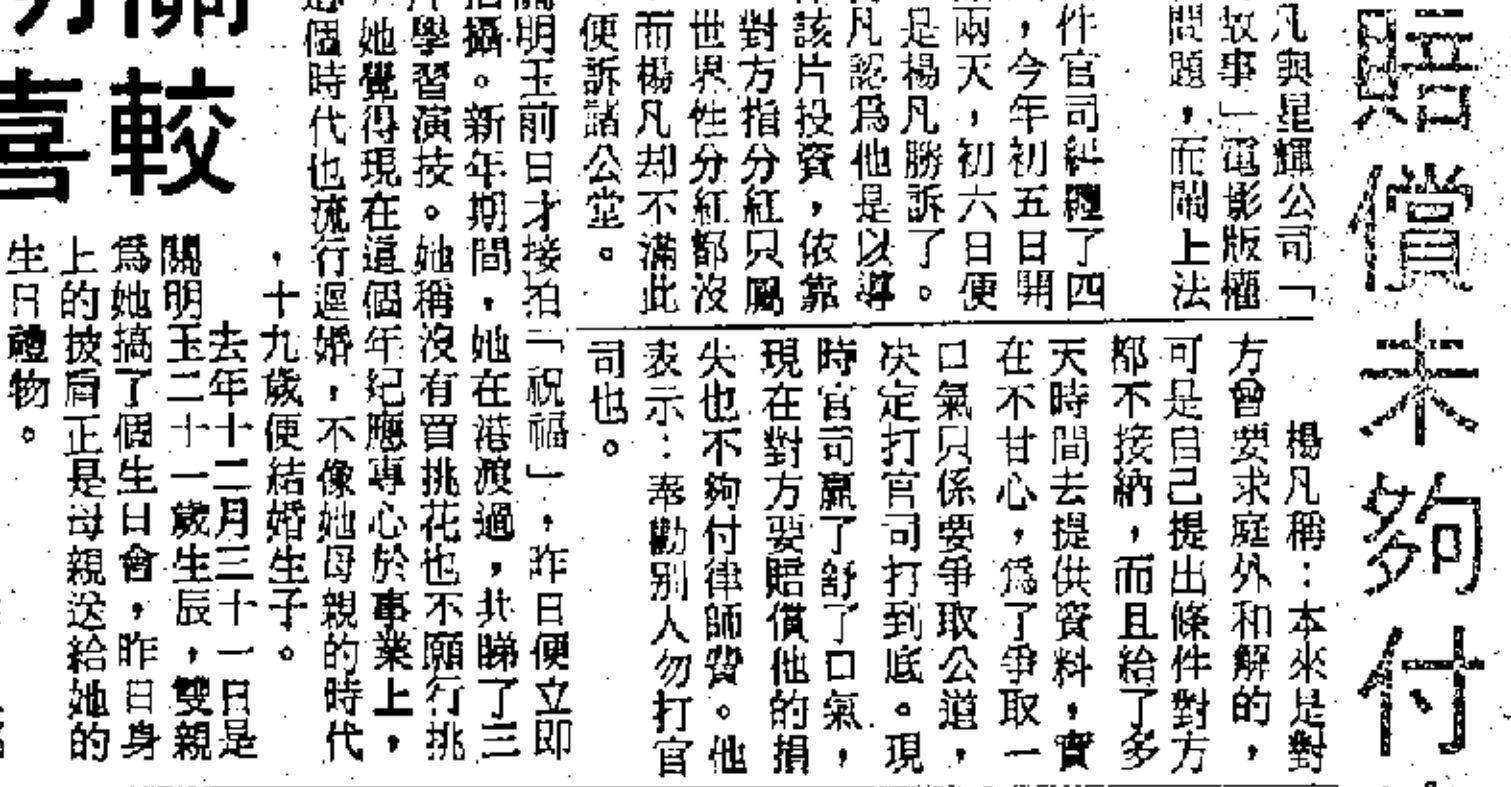 賠償未夠付
凡與星輝公司「
故事」電影版權
問題，而鬧上法
件官司糾纏了四
，今年初五日開
兩天，初六日便
是楊凡勝訴了。
凡認爲他是以導
該片投資，依靠
對方指分紅只屬
世界性分紅都沒
而楊凡却不滿此
便訴諸公堂。
楊凡稱：本來是對
方曾要求庭外和解的，
可是自己提出條件對方
都不接納，而且給了多
天時間去提供資料，實
在不甘心，爲了爭取一
口氣只係要爭取公道，
决定打官司打到底。現
時官司贏了舒了口氣，
現在對方要賠償他的損
失也不夠付律師費。他
表示：奉勸别人勿打官
司也。
關較
喜
關明玉前日才接拍「祝福」，昨日便立即
拍攝。新年期間，她在港渡過，共睇了三
學習演技。她稱沒有買挑花也不願行挑
她覺得現在這個年紀應專心於事業上，
這個時代也流行遲婚，不像她母親的時代
，十九歲便結婚生子。
去年十二月三十一日是
關明玉二十一歲生辰，雙親
爲她搞了個生日會，昨日身
上的披肩正是母親送給她的
生日禮物。